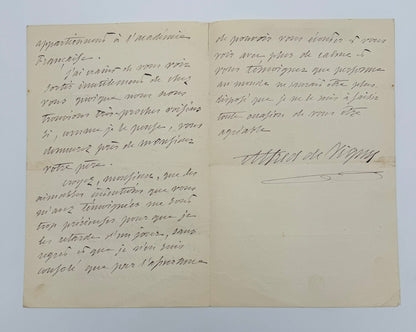 appartiennent à l'académie
Française.
J'ai craint de vous voir
sortir inutilement de chez
vous quoique nous nous
trouvions très proches voisins
si, comme je le pense, vous
demeurez près de Monsieur
votre père.
Croyez, monsieur, que les
aimables intentions que vous
m'avez témoignées me sont
trop précieuses pour que je
les retarde d'un jour, sans
regret et que je n'en suis
consolé que par l'espérance
de pouvoir vous écouter et vous
voir avec plus de calme et
vous témoigner que personne
au monde ne saurait être plus
disposé que je ne le suis à saisir
toute occasion de vous être
agréable
Alfred de Vigny